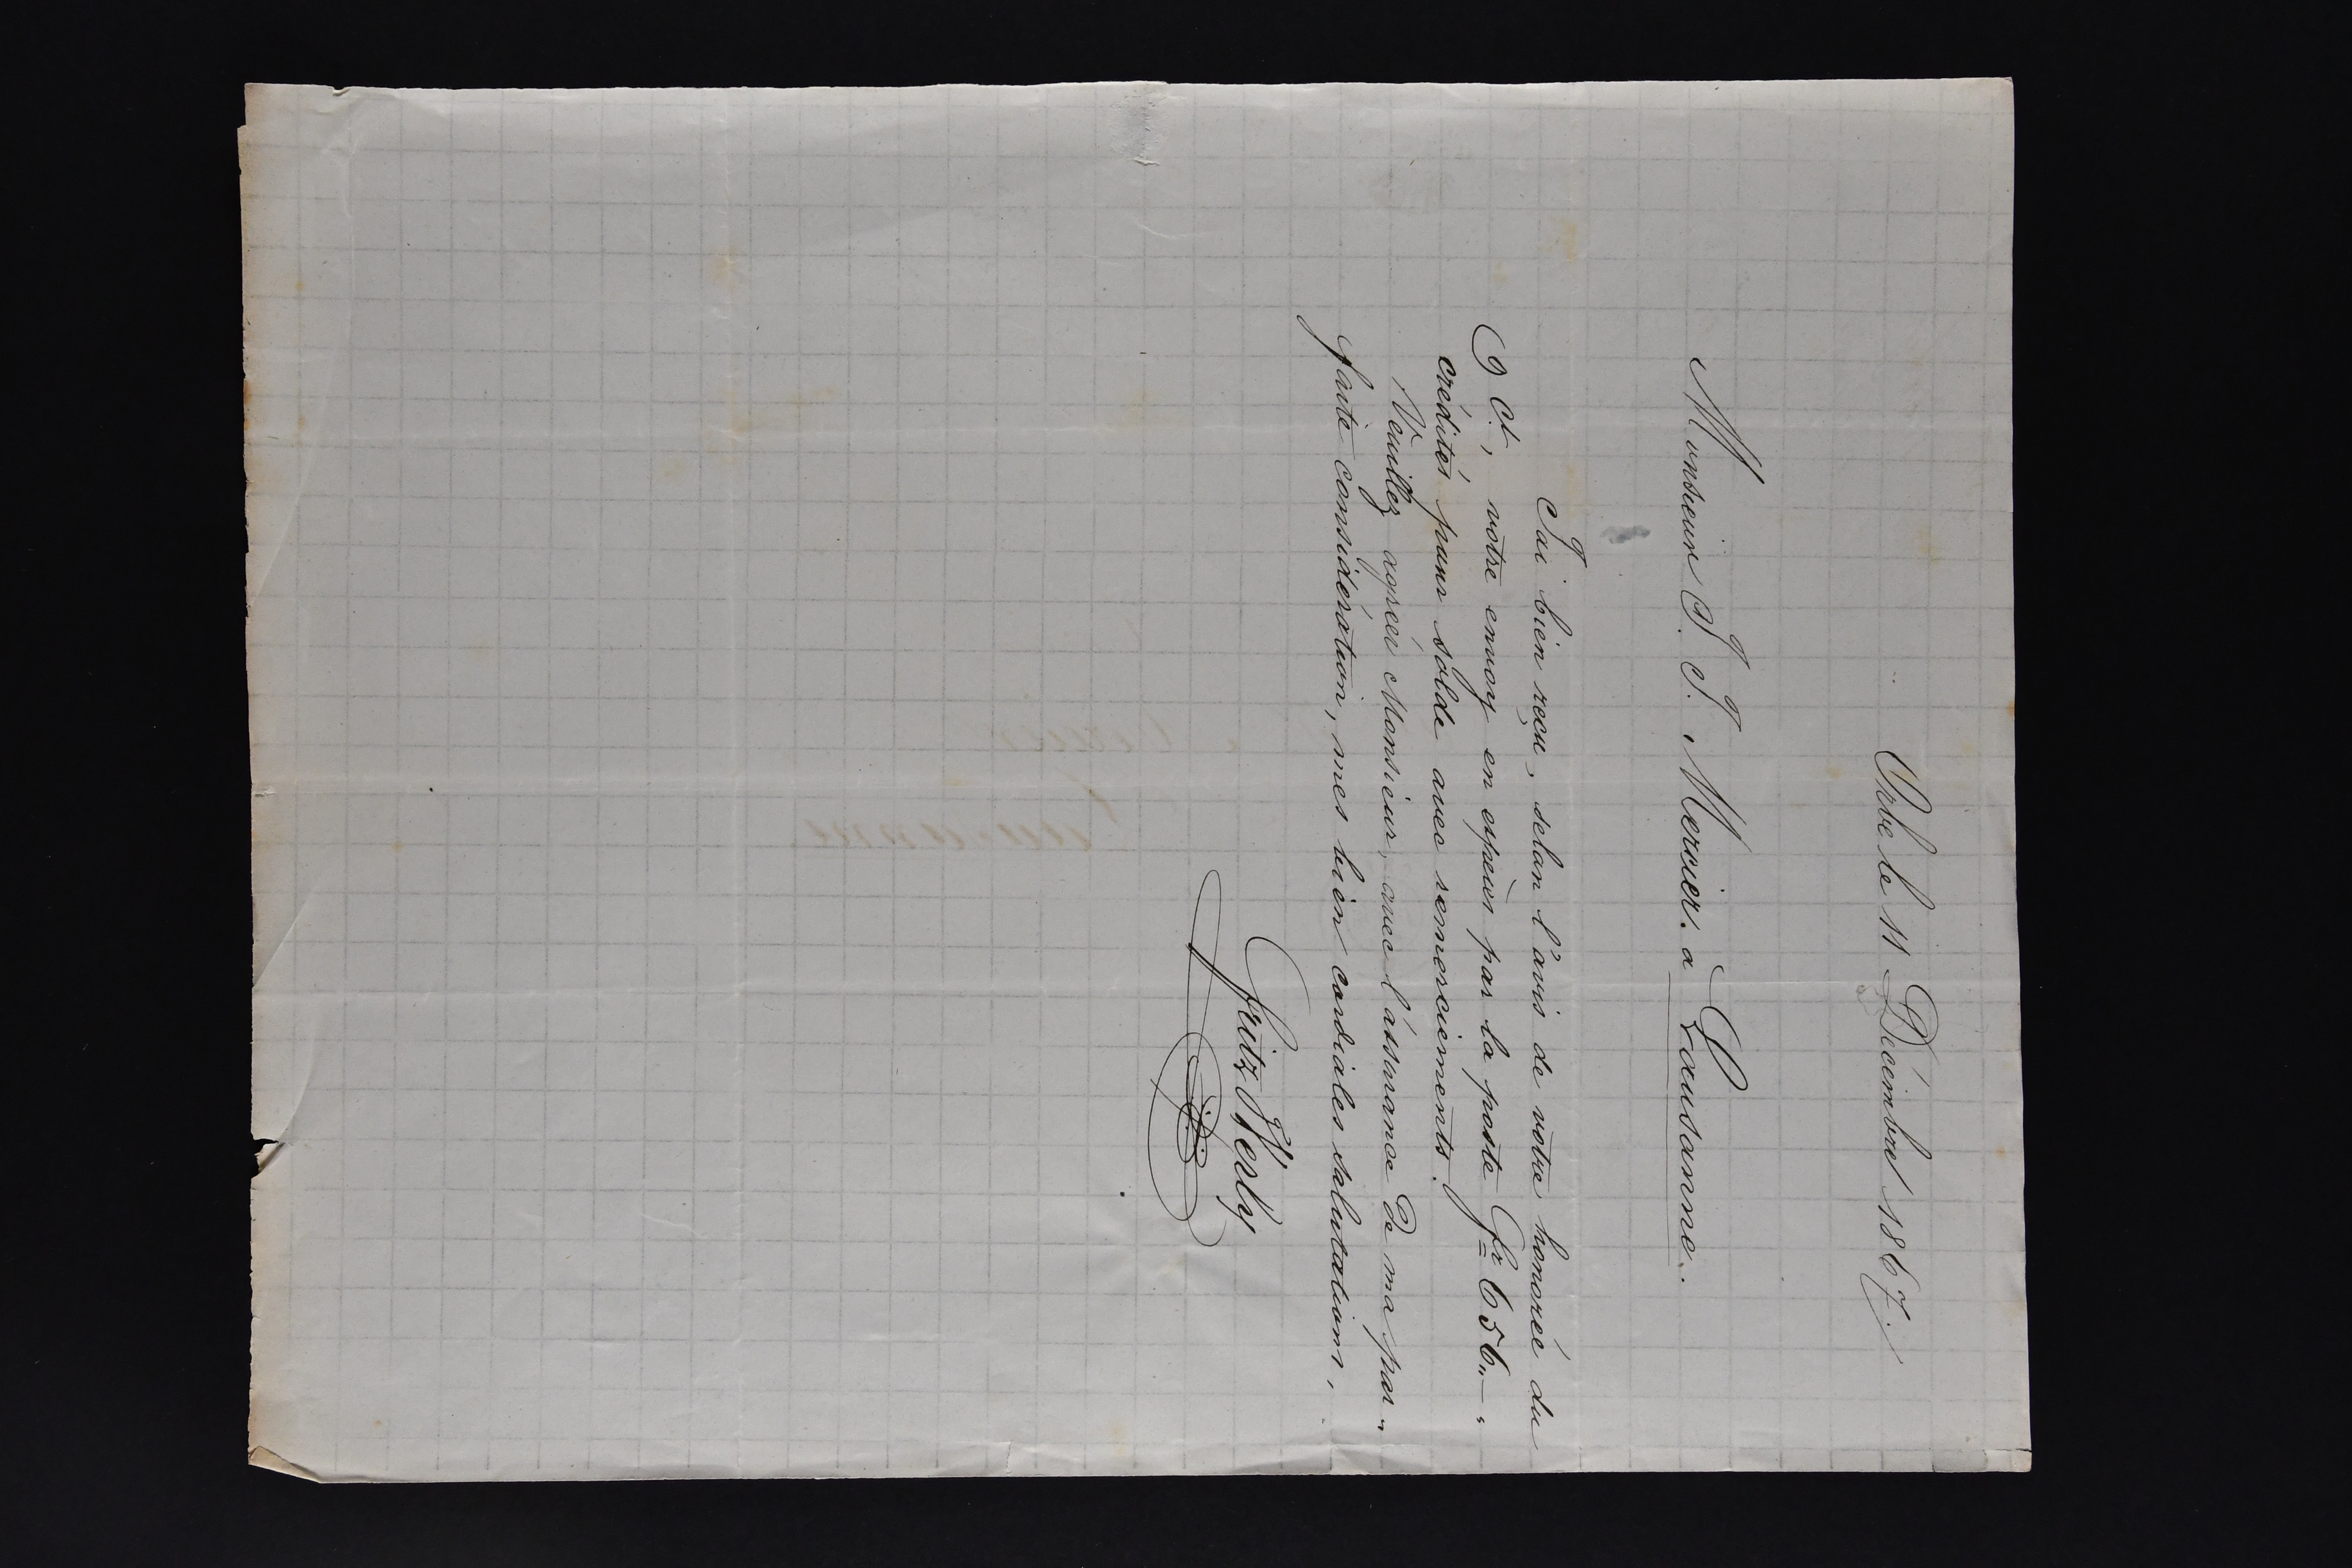 Orbe le 11 Décembre 1867.
Monsieur J. J. Mercier. a Lausanne.
J'ai bien reçu, selon l'avis de votre honorée du
9 ct, votre envoy en espèces par la poste Fr 656.,—"
crédités pour solde avec remerciements.
Veuillez agréer Monsieur, avec l'assurance de ma par„
faite considération, mes bien cordiales salutations,
Fritz Werly